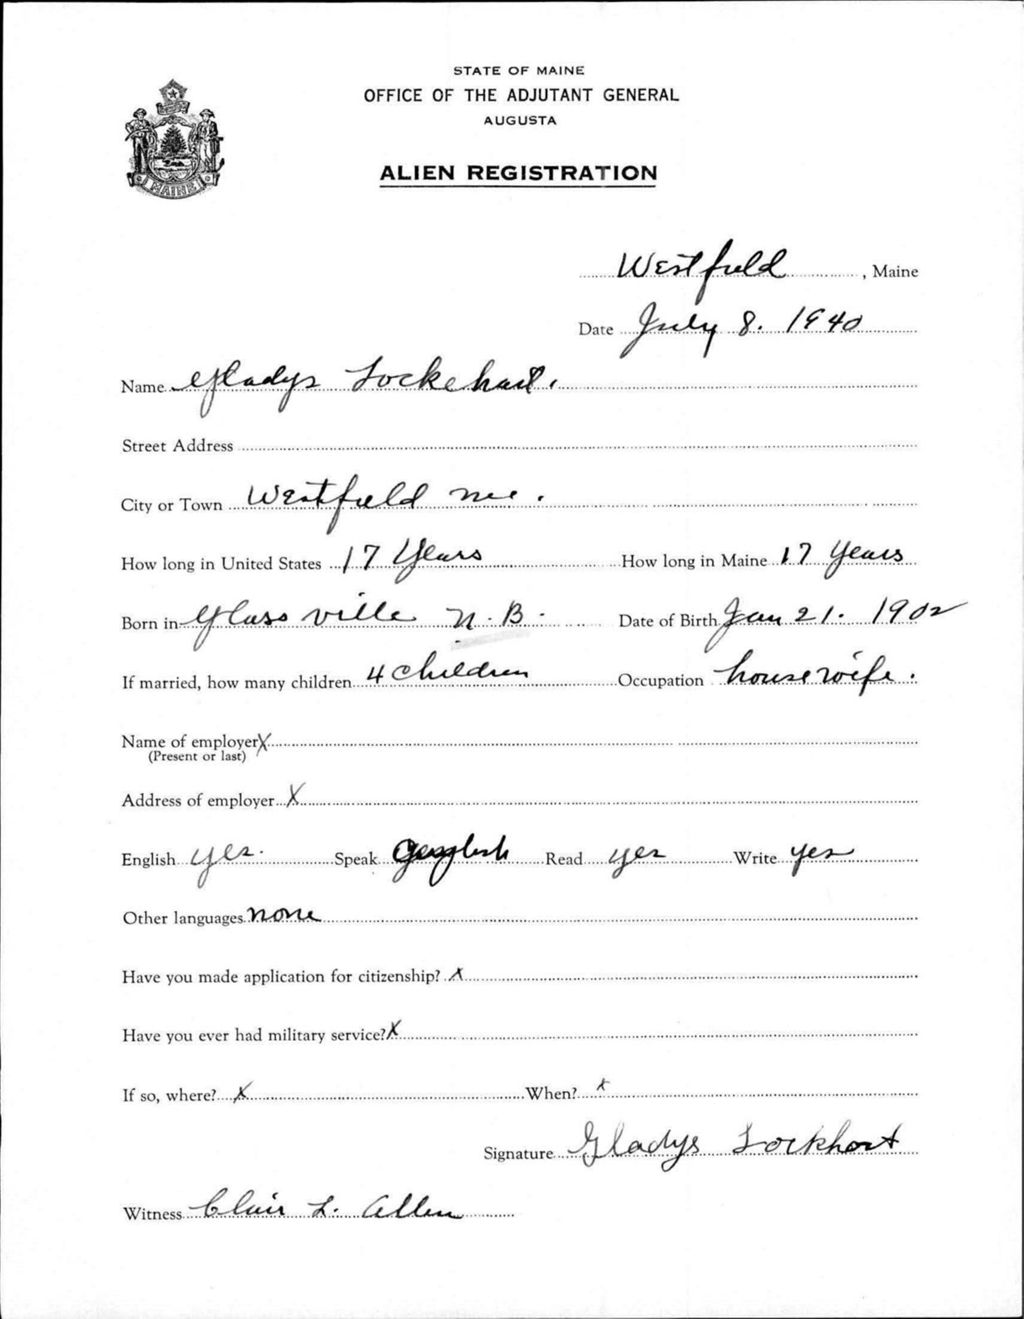 STATE OF MAINE
OFFICE OF THE ADJUTANT GENERAL
AUGUSTA
ALIEN REGISTRATION
MAINE
Westfield, Maine
Date July 8. 1940
Name Gladys Lockehart.
Street Address
City or Town Westfield Me.
How long in United States 17 Years How long in Maine 17 Years
Born in Glassville N.B. Date of Birth Jan 21. 1902
If married, how many children 4 Children Occupation housewife.
Name of employer X
(Present or last)
Address of employer X
English yes. Speak Read yes Write yes
Other languages none
Have you made application for citizenship? X
Have you ever had military service? X
If so, where? X When? X
Signature Gladys Lockhart
Witness Clair L. Allen